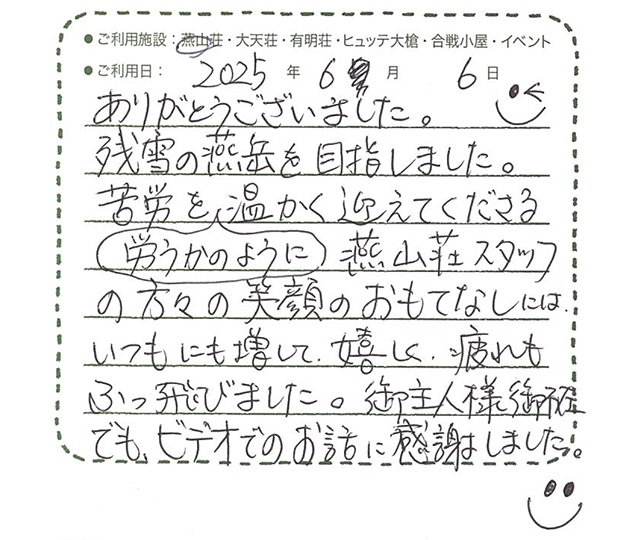 ● ご利用施設：燕山荘・大天荘・有明荘・ヒュッテ大槍・合戦小屋・イベント
● ご利用日： 2025 年 6 月 6 日
ありがとうございました。
残雪の燕岳を目指しました。
苦労を温かく迎えてくださる
労うかのように 燕山荘スタッフ
の方々の笑顔のおもてなしには、
いつもにも増して、嬉しく、疲れも
ふっ飛びました。御主人様御不在
でも、ビデオでのお話に感謝しました。